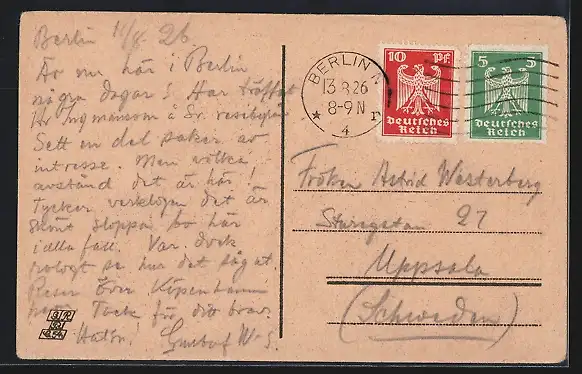 Berlin 11/8. 26
Är nu här i Berlin
några dagar! Har träffat
Hr Nymansom å Sv. resebyrån
Sett en del saker av
intresse. Men vilka
avstånd det är här!
Tycker verkligen det är
skönt slippa bo här
i alla fall. Var dock
roligt se hur det såg ut.
Reser över Köpenhamn
Tack för ditt brev.
Hälsn! Gustaf W-g.
BERLIN N
13.8.26
8-9 N
* 4 r
10 Pf
Deutsches
Reich
5 5
Deutsches
Reich
Fröken Astrid Westerberg
27
Uppsala
(Schweden)